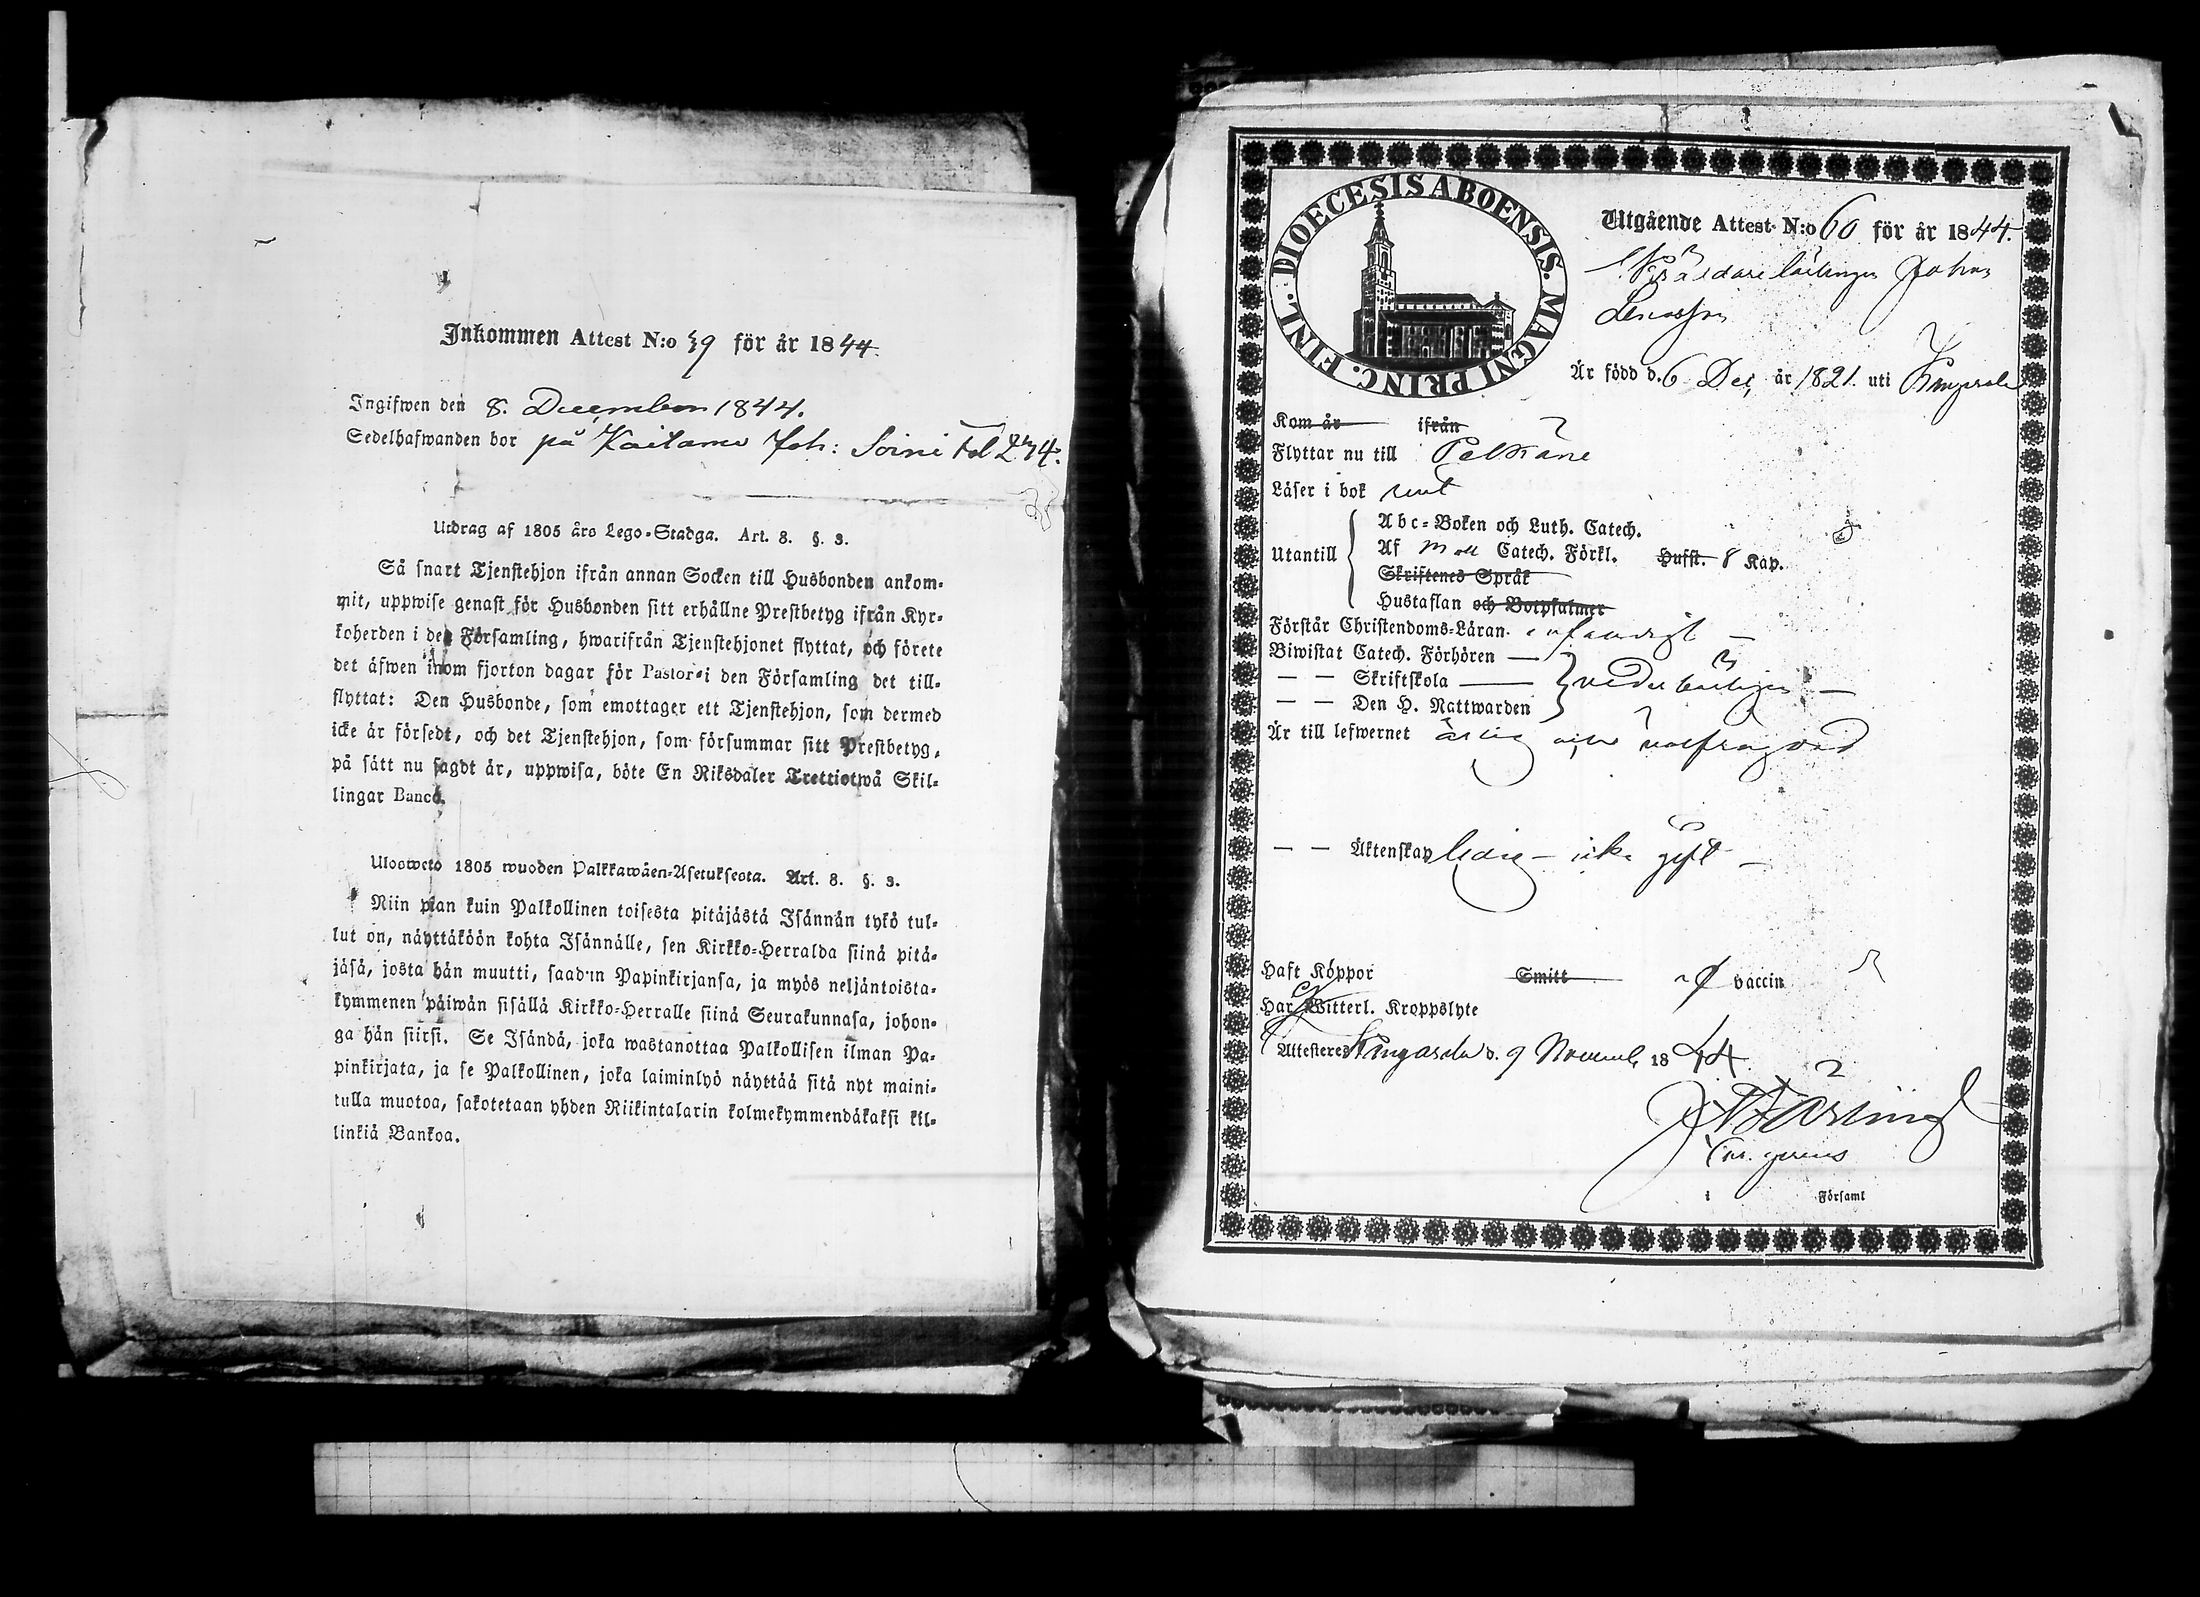 Inkommen Attest N:o 39 för år 1844.
Ingifwen den 8. December 1844.
Sedelhafwanden bor på Kaitamo Joh: Soini Fol 274.
Utdrag af 1805 års Lego-Stadga. Art. 8. §. 3.
Så snart Tjenstehjon ifrån annan Socken till Husbonden ankom-
mit, uppwise genast för Husbonden sitt erhållne Prestbetyg ifrån Kyr-
koherden i den Församling, hwarifrån Tjenstehjonet flyttat, och förete
det äfwen inom fjorton dagar för Pastor i den Församling det till-
flyttat: Den Husbonde, som emottager ett Tjenstehjon, som dermed
icke är försedt, och det Tjenstehjon, som försummar sitt Prestbetyg,
på sätt nu sagdt är, uppwisa, böte En Riksdaler Trettiotwå Skil-
lingar Banco.
Ulosweto 1805 wuoden Palkkawäen-Asetuksesta. Art. 8. §. 3.
Niin pian kuin Palkollinen toisesta pitäjästä Isännän tykö tul-
lut on, näyttäköön kohta Isännälle, sen Kirkko-Herralda siinä pitä-
jäsä, josta hän muutti, saadun Papinkirjansa, ja myös neljäntoista-
kymmenen päiwän sisällä Kirkko-Herralle siinä Seurakunnasa, johon-
ga hän siirsi. Se Isändä, joka wastanottaa Palkollisen ilman Pa-
pinkirjata, ja se Palkollinen, joka laiminlyö näyttää sitä nyt maini-
tulla muotoa, sakotetaan yhden Riikintalarin kolmekymmendäkaksi kil-
linkiä Bankoa.
DIOECESIS ABOENSIS. MAGNI PRINC. FINL.
Utgående Attest N:o 60 för år 1844.
Johan
Är född d. 6 Dec. år 1821. uti Kangasala
Kom år ifrån
Flyttar nu till Pelkäne
Läser i bok rent
Utantill
Abc-Boken och Luth. Catech.
Af Catech. Förkl. Hufst. 8 Kap.
Skriftenes Språk
Hustaflan och Botpsalmer
Förstår Christendoms-Läran
Biwistat Catech. Förhören
— — Skriftskola
— — Den H. Nattwarden
Är till lefwernet ärlig
— — Äktenskap ledig — icke gift —
Haft Köppor Smitt vaccin
Har Witterl. Kroppslyte
Attesteres Kangasala d. 9 Novemb. 1844
i Församl